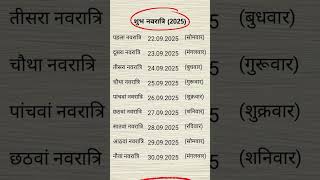 शुभ नवरात्रि (2025)
पहला नवरात्रि 22.09.2025 (सोमवार)
दूसरा नवरात्रि 23.09.2025 (मंगलवार)
तीसरा नवरात्रि 24.09.2025 (बुधवार)
चौथा नवरात्रि 25.09.2025 (गुरूवार)
पांचवां नवरात्रि 26.09.2025 (शुक्रवार)
छठवां नवरात्रि 27.09.2025 (शनिवार)
सातवां नवरात्रि 28.09.2025 (रविवार)
आठवां नवरात्रि 29.09.2025 (सोमवार)
नौवा नवरात्रि 30.09.2025 (मंगलवार)
(बुधवार)
चौथा नवरात्रि (गुरूवार)
पांचवां नवरात्रि (शुक्रवार)
छठवां नवरात्रि (शनिवार)